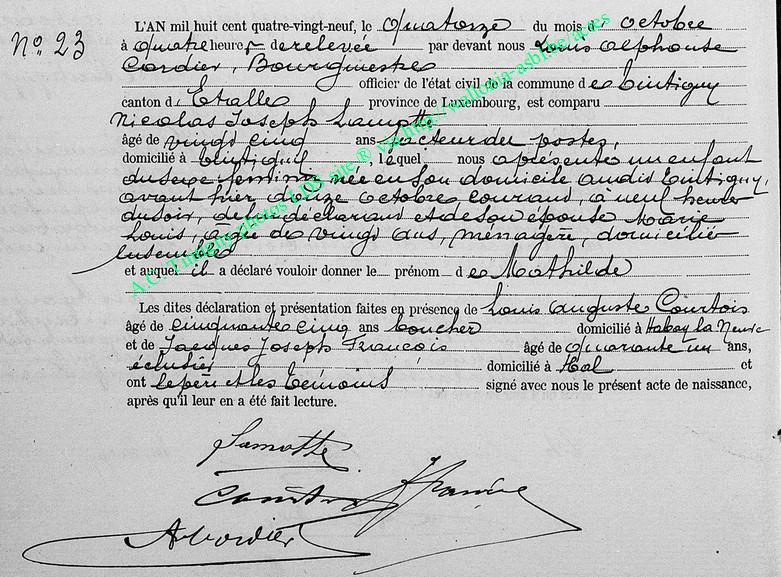 L'AN mil huit cent quatre-vingt-neuf, le quatorze du mois d'octobre
N° 23
à quatre heures de relevée par devant nous Louis Alphonse
Cordier, Bourgmestre
officier de l'état civil de la commune de Tintigny
canton d'Etalle province de Luxembourg, est comparu
Nicolas Joseph Lamotte
âgé de vingt cinq ans facteur des postes,
domicilié à Tintigny, lequel nous a présenté un enfant
du sexe féminin née en son domicile audit Tintigny,
avant hier, douze octobre courant, à neuf heures
du soir, de lui déclarant et de son épouse Marie
Louis, âgée de vingt ans, ménagère, domiciliés
ensemble
et auquel il a déclaré vouloir donner le prénom de Mathilde
Les dites déclaration et présentation faites en présence de Louis Auguste Courtois
âgé de cinquante cinq ans boucher domicilié à Habay la Neuve
et de Jacques Joseph Francois âgé de quarante un ans,
éclusier domicilié à Hal et
ont le père et les témoins signé avec nous le présent acte de naissance,
après qu'il leur en a été fait lecture.
Lamotte
A. Cordier